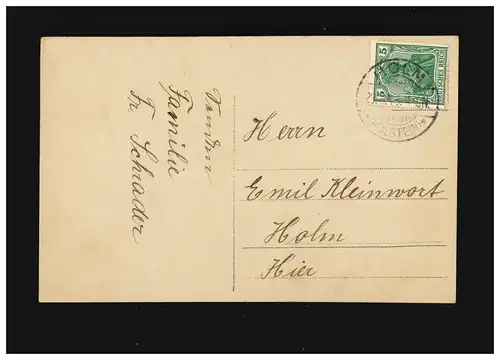 Von den
Familie
Fr. Schrader
5 5
DEUTSCHES REICH
HOLM
HOLSTEIN
Herrn
Emil Kleinwort
Holm
Hier